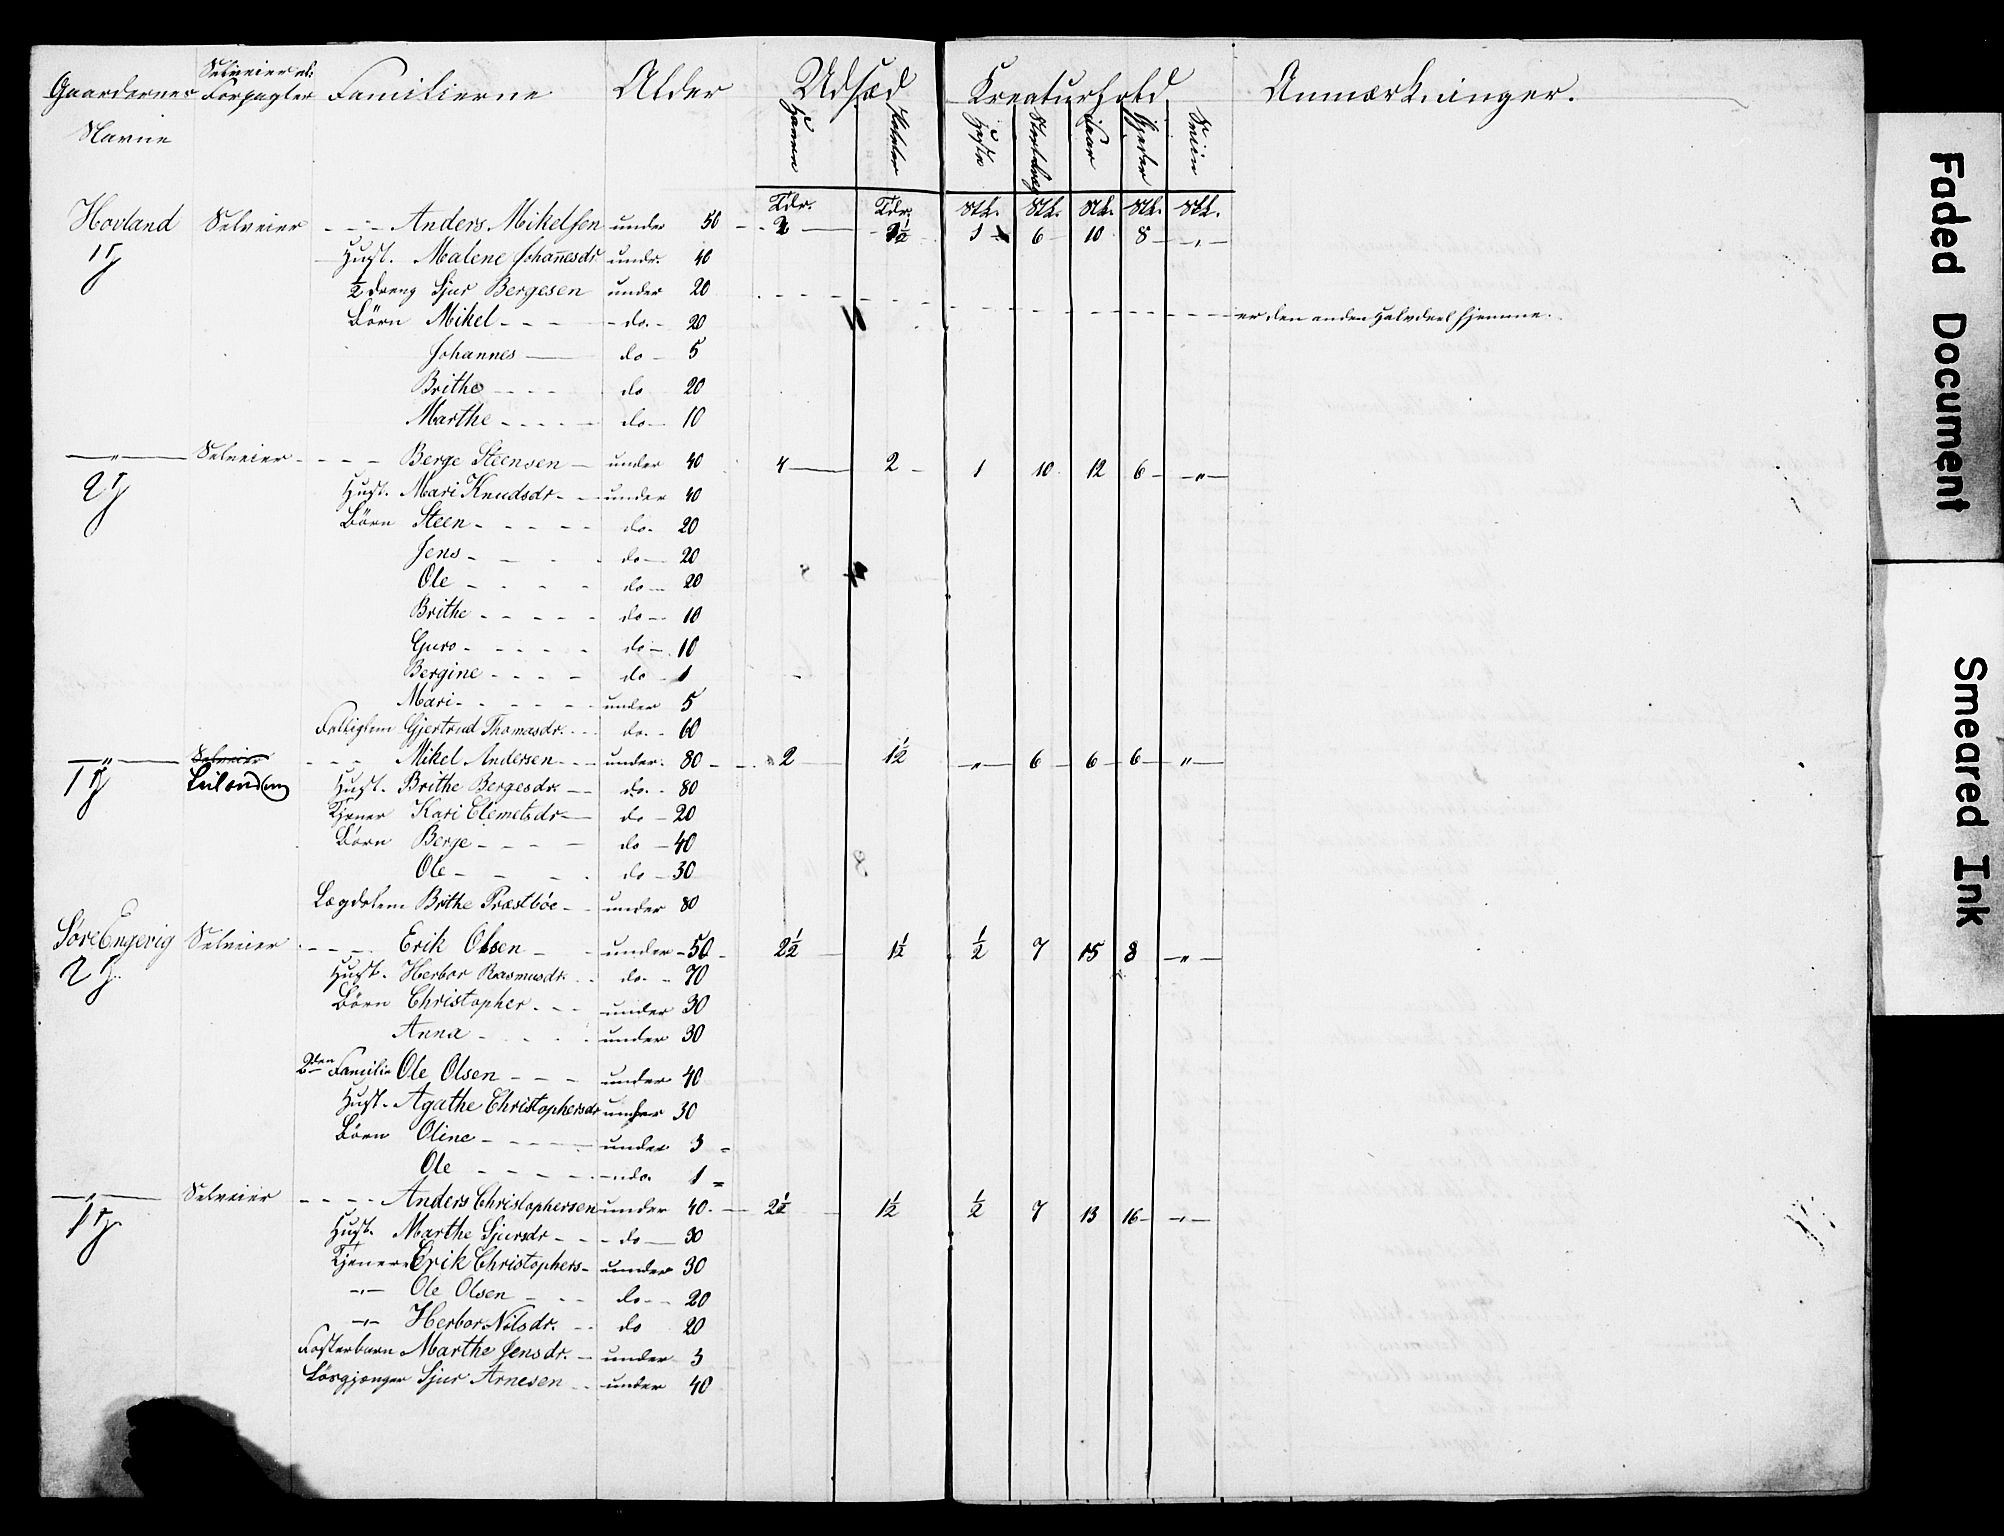 Gaardernes Navne | Selveier el: Forpagter | Familierne | Alder | Udsæd | Kreaturhold | Anmærkninger.
Havre | Poteter | Heste | Storfæ | Faar | Gjeder | Sviin
Tdr. | Tdr. | Stk. | Stk. | Stk. | Stk. | Stk.
Hovland Selveier - - - Anders Mikelsen under 50 - - 2 — - 1½ 1 - 6 10 8 - „ -
1 Hust. Malene Johannesdr. undr. 40
½ dreng Sjur Bergesen under 20 er den anden Halvdeel hjemme.
Börn Mikel - - - - do. - 20
Johannes — do - 5
Brithe - - - - do 20
Marthe - - - - do - 10
—„— Selveier - - - - Berge Steensen - under 40 4 — 2 - 1 10 12 6 - „ -
2 Hust. Mari Knudsdr - - under 40
Börn Steen - - - - - do. 20
Jens - - - - do — 20
Ole - - - - do — 20
Brithe - - - - - do — 10
Guro - - - - - do - 10
Bergine - - - - do - 1
Mari - - - - - under 5
Fattiglem Gjertrud Thomasdr. - - do. - 60
—„— Selveier - - - Mikel Andersen - - - under. 80 - - 2 1½ - „ - 6 - 6 - 6 - „ -
1 Leilænding Hust. Brithe Bergesdr. - - do. - 80
Tjener Kari Clemetsdr - do - 20
Börn Berje - - - - do - 40
Ole - - - - do - 30
Lægdslem Brithe Præstböe - - under 80
Søre Engevig Selveier - - - - Erik Olsen - - under - 50 - 2½ - 1½ ½ 7 15 8 - „ -
2 Hust. Herbor Rasmusdr. - - do. - 70
Börn Christopher - - - under 30
Anna - - - - under 30
2den Familie Ole Olsen - - - under 40
Hust. Agathe Christophersdr under 30
Börn Oline - - - - under 3
Ole - - - - - do. 1
—„— Selveier - - - - Anders Christophersen under 40 - - 2½ - 1½ ½ 7 13 16 - „ -
1 Hust. Marthe Sjursdr - - - do — 30
Tjenere Erik Christophers - under 30
-„- Ole Olsen - - - do - - 20
-„- Herbor Nilsdr. - - do 20
Fosterbarn Marthe Jensdr. - under 3
Lösgjænger Sjur Arnesen - - under 40
Faded Document
Smeared Ink